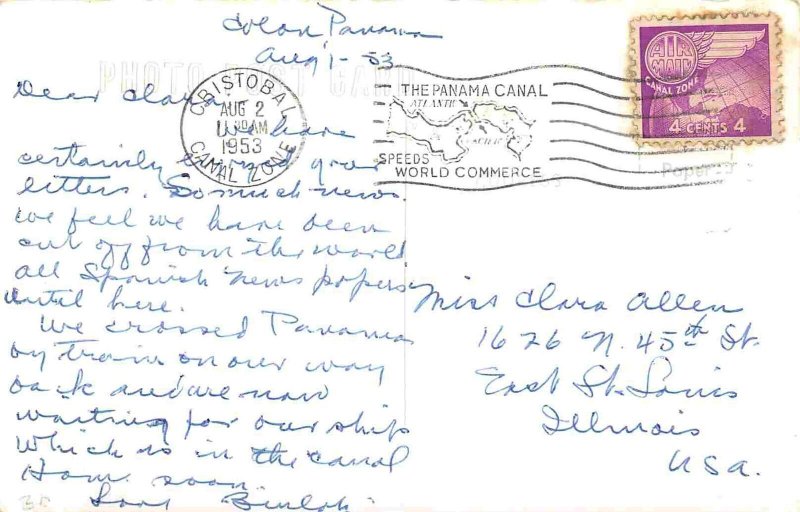 Colon Panama
Aug 1 - 53
PHOTO POST CARD
Dear Clara,
We have
certainly enjoyed your
letters. So much news.
we feel we have been
cut off from the world
all Spanish news papers
until here.
We crossed Panama
by train on our way
back and we now
waiting for our ship
Which is in the canal
Home soon.
Love Beulah
CRISTOBAL
AUG 2
11 30 AM
1953
CANAL ZONE
THE PANAMA CANAL
ATLANTIC
PACIFIC
SPEEDS
WORLD COMMERCE
AIR
MAIL
CANAL ZONE
4 CENTS 4
Miss Clara Allen
1626 N. 45th St.
East St. Louis
Illinois
USA.